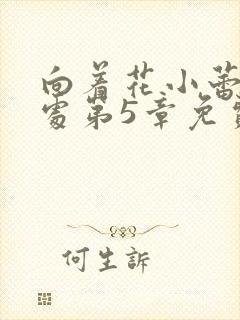 向着花小蕾
处第5章免费
何生訴